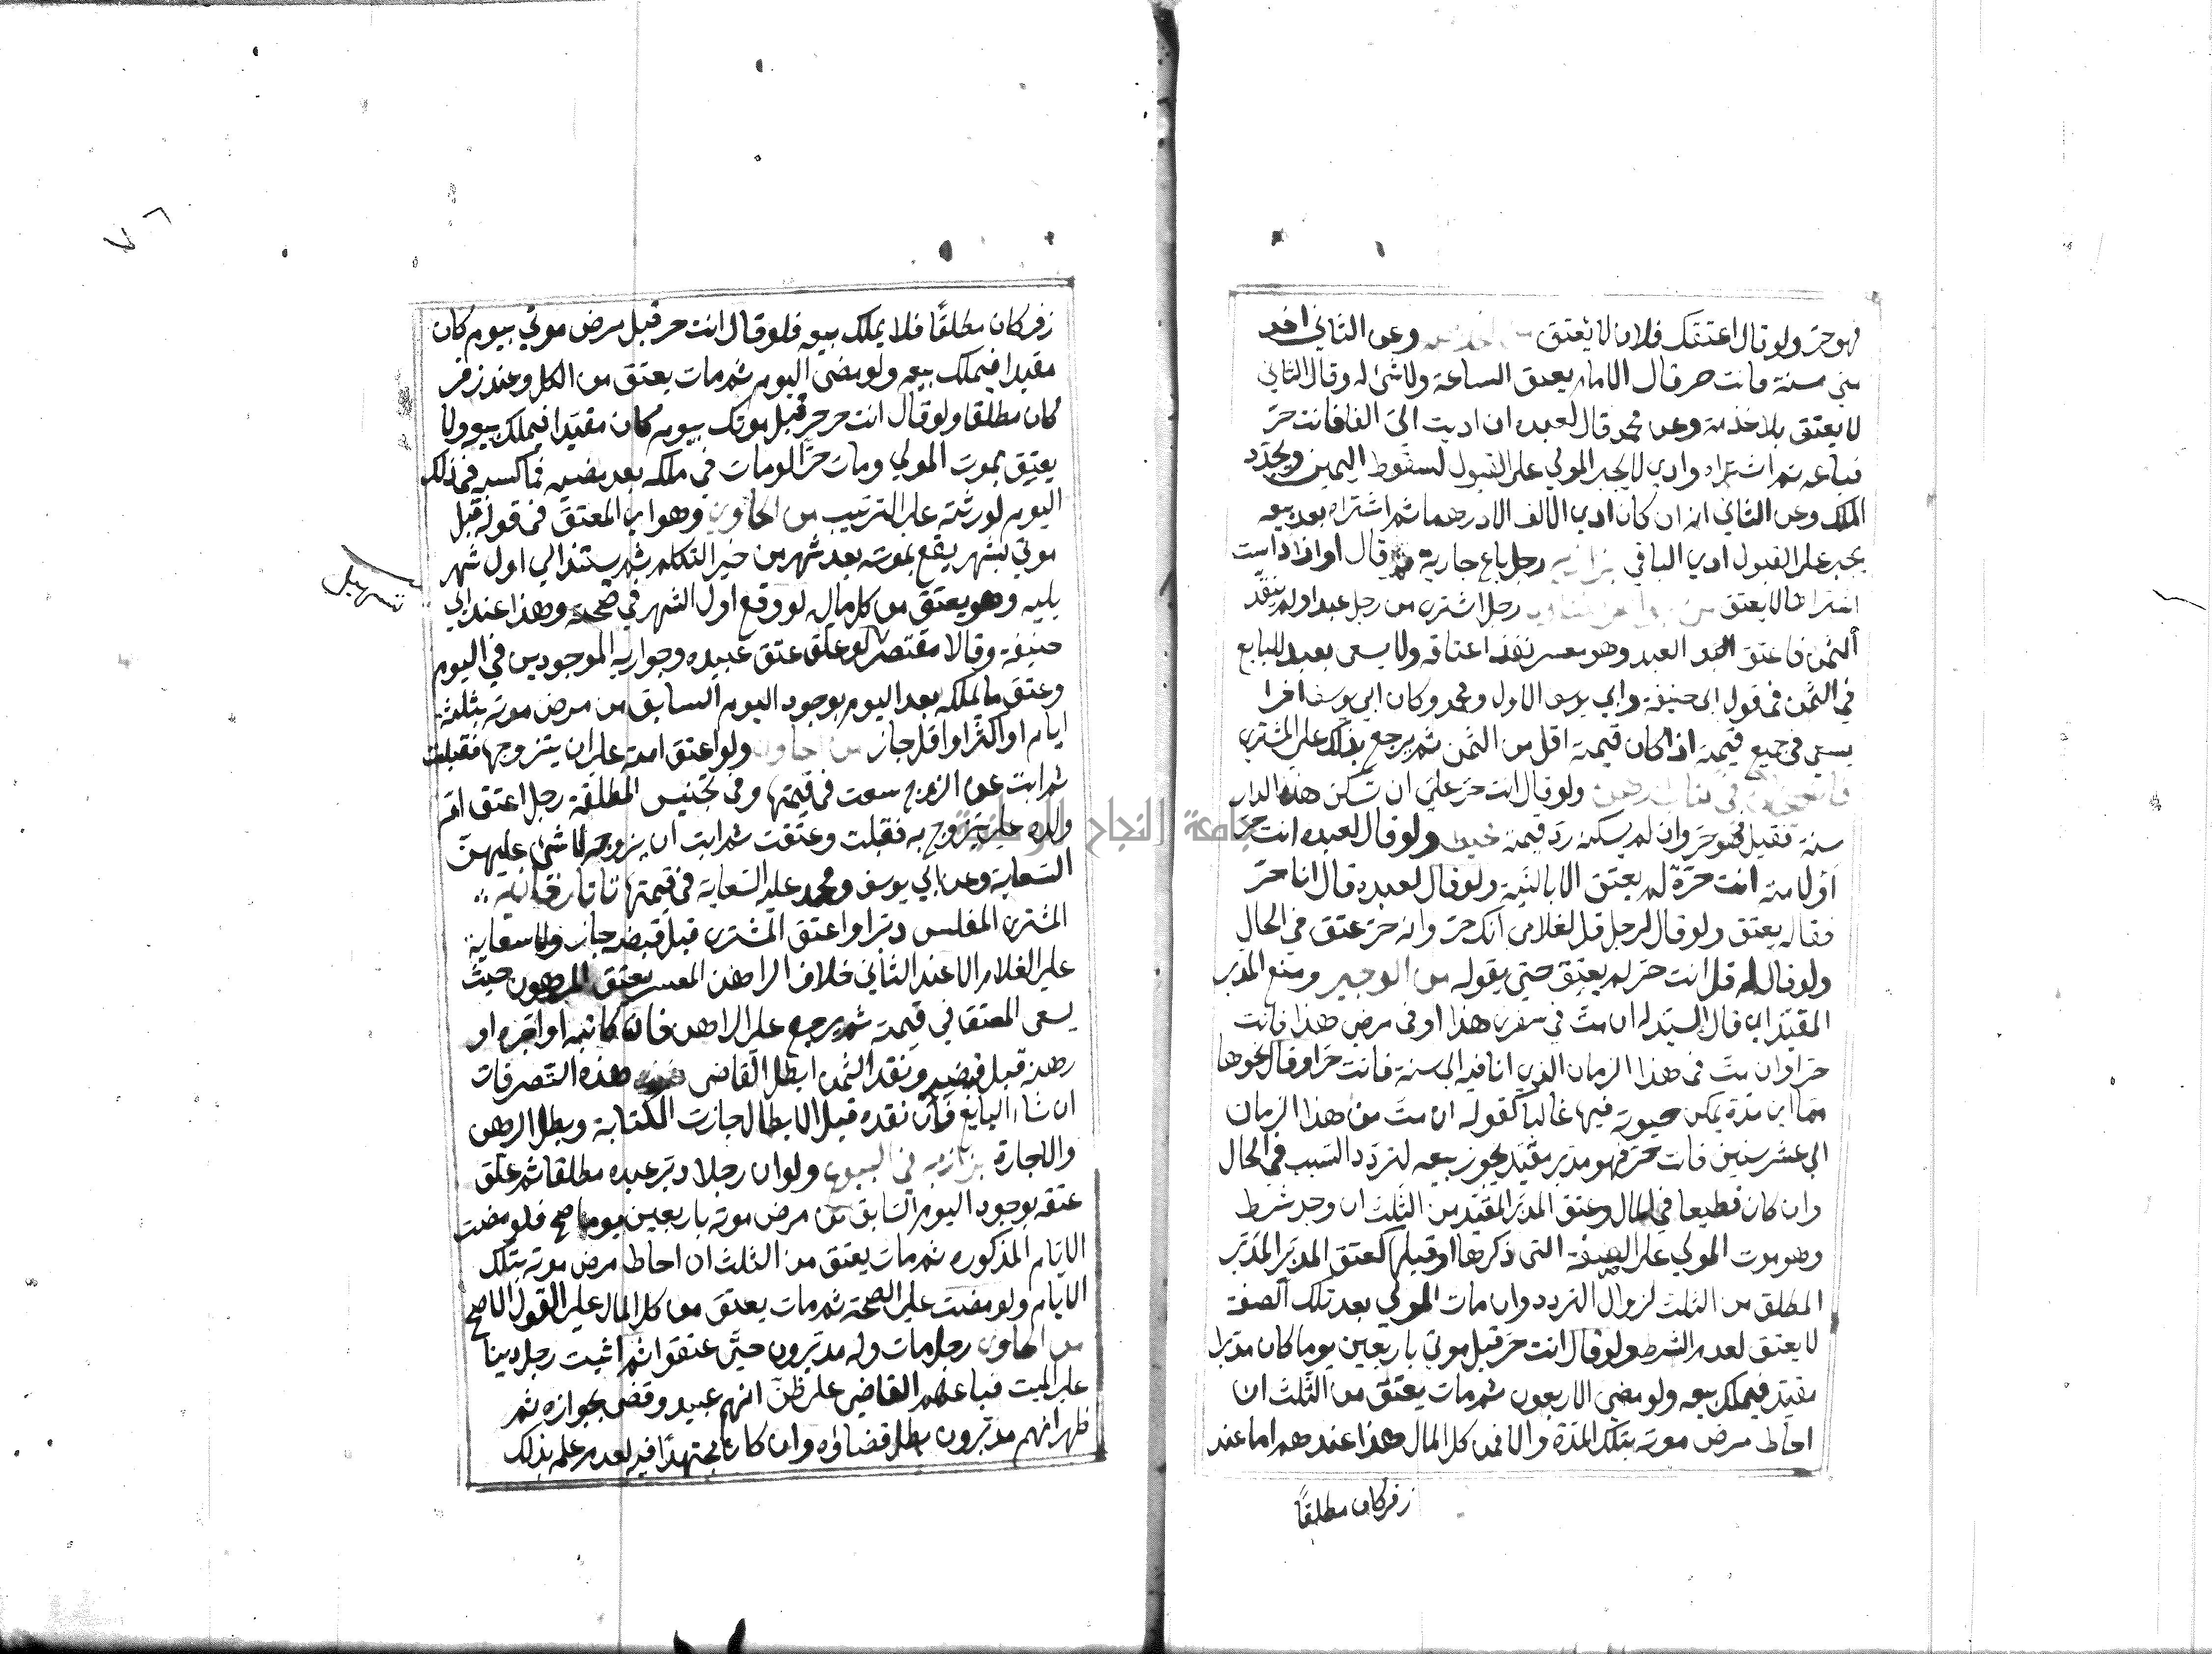 فهو حر ولو قال اعتقك فلان لا يعتق وعن الثاني اخد
مني سنة فانت حر قال الامام يعتق الساعة ولا شئ له وقال الثاني
لا يعتق بلا خدمة وعن محمد قال لعبده ان اديت الي الفا فانت حر
فباعه ثم اشتراه وادي لا يجبر المولي علي القبول لسقوط اليمين وتجدد
الملك وعن الثاني انه ان كان ادي الالف الا درهما ثم اشتراه بعد بيعه
يجبر علي القبول ادي الباقي بزازيه رجل باع جارية قال
اشتراها لا يعتق رجل اشتري من رجل عبدا ولم ينقد
الثمن فاعتق العبد وهو معسر نفذ اعتاقه ولا يسعي بعبد للبايع
في الثمن في قول ابي حنيفة وابي يوسف الاول ومحمد وكان ابي يوسف اخرا
يسعي في جميع قيمة اذا كان قيمة اقل من الثمن ثم يرجع بذلك علي المشتري
ولو قال انت حر علي ان تسكن هذه الدار
سنة فقبل فهو حر وان لم يسكنه رد قيمته محيط ولو قال لعبده انت حر
او لامته انت حرة لم يعتق الا بالنية ولو قال لعبده قال انا حر
فقاله يعتق ولو قال لرجل قل لغلامي انك حر وانه حر عتق في الحال
ولو قال له قل انت حر لم يعتق حتي يقوله من الوجيز ومنع المدبر
المقيد اي قال السيد له ان مت في سفري هذا او في مرضي هذا فانت
حر او ان مت في هذا الزمان الذي انا فيه الي سنة فانت حر او قال نحوها
مما اي مدة يمكن حيوته فيها غالبا كقوله ان مت من هذا الزمان
الي عشر سنين فانت حر فهو مدبر مقيد يجوز بيعه لتردد السبب في الحال
وان كان قطيعا في المال وعتق المدبر المقيد من الثلث ان وجد شرط
وهو موت المولي علي الصفة التي ذكرها او قبلها كعتق المدبر المدبر
المطلق من الثلث لزوال التردد وان مات المولي بعد تلك الصفة
لا يعتق لعدم الشرط ولو قال انت حر قبل موتي باربعين يوما كان مدبرا
مقيد فيملك بيعه ولو مضي الاربعون ثم مات يعتق من الثلث ان
احاط مرض موته بتلك المدة والا فمن كل المال وهذا عندهم اما عند
زفر كان مطلقًا
زفر كان مطلقًا فلا يملك بيعه فلو قال انت حر قبل مرض موتي بيوم كان
مقيدا فيملك بيعه ولو مضي اليوم ثم مات يعتق من الكل وعند زفر
كان مطلقا ولو قال انت حر حر قبل موتك بيوم كان مقيدا فيملك بيعه ولا
يعتق بموت المولي ومات حرا لو مات في ملكه بعد مضيه فما كسبه في ذلك
اليوم لورثته علي الترتيب من الحاوي وهو اي المعتق في قوله قبل
موتي بشهر يقع بموته بعد شهر من خير التكلم ثم يستند الي اول شهر
يليه وهو يعتق من كل مال لو وقع اول الشهر في صحته وهذا عند ابي
حنيفة وقالا مقتصر لو علق عتق عبيده وجواريه الموجودين في اليوم
وعتق ما يملكه بعد اليوم بوجود اليوم السابق من مرض موته بثلثة
ايام او اكثر او اقل جاز من الحاوي ولو اعتق امته علي ان يتزوجها فقبلت
ثم ابت عن الزوج سعت في قيمتها وفي تجنيس المطلقة رجل اعتق ام
ولده علي يتزوج به فقبلت وعتقت ثم ابت ان يزوجه لا شئ عليه من
السعاية وعن ابي يوسف ومحمد عليه السعاية في قيمتها تاتارخانية
المشتري المفلس دبر او اعتق المشتري قبل قبضه جاز ولا سعاية
علي الغلام الا عند الثاني خلاف الراهن المعسر يعتق المرهون حيث
يسعي المعتق في قيمة ثم يرجع علي الراهن فان كاتبه او اجره او
رهنه قبل قبضه ونقد الثمن ابطل القاضي هذه التصرفات
ان شاء البايع فان نقده قبل الابطال جازت الكتابة وبطل الرهن
والاجارة بزازيه في البيوع ولو ان رجلا دبر عبده مطلقا ثم علق
عتقه بوجود اليوم السابق من مرض موته باربعين يوما صح فلو مضت
الايام المذكوره ثم مات يعتق من الثلث ان احاط مرض موته بتلك
الايام ولو مضت علي الصحة ثم مات يعتق من كل المال علي القول الاصح
من الحاوي رجل مات وله مدبرون حتي عتقوا ثم اثبت رجل دينا
علي الميت فباعهم القاضي علي ظن انهم عبيد وقضي بجوازه ثم
ظهر انهم مدبرون بطل قضاؤه وان كان مجتهدًا فيه لعدم علمه بذلك
تسهيل
٧٦
جامعة النجاح الوطنية